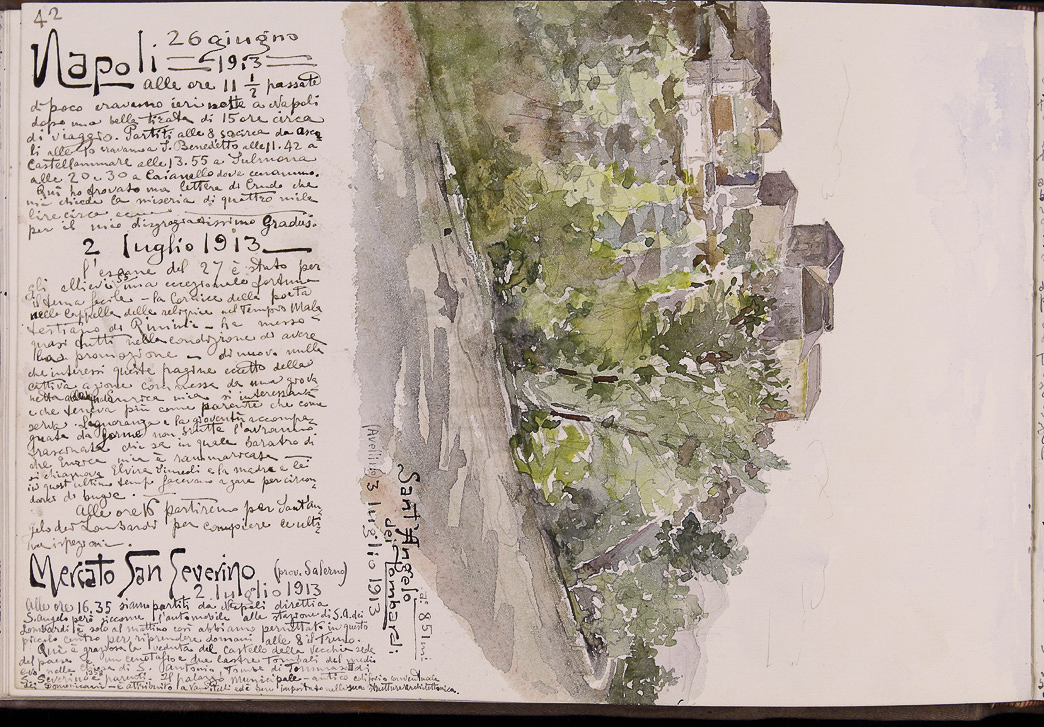 42
Napoli 26 giugno
1913
alle ore 11 1/2 passate
di poco eravamo ieri notte a Napoli
dopo una bella tirata di 15 ore circa
di viaggio. Partiti alle 8 circa da Asco
li alle eravamo a S. Benedetto alle 11.42 a
Castellammare alle 13.55 a Sulmona
alle 20.30 a Caianello dove cenammo.
Qui ho trovato una lettera di che
mi chiede la miseria di quattro mila
lire circa
per il suo disgraziatissimo Gradus.
2 luglio 1913
L'esame del 27 è stato per
gli allievi una eccezionale fortuna
il tema facile - la Cornice della porta
nella Cappella delle reliquie nel Tempio Mala
testiano di Rimini - ha messo
quasi tutti nella condizione di avere
la promozione - di nuovo nulla
che interessi queste pagine eccetto della
cattiva azione commessa da una giova
netta mia si
e che teneva più come parente che come
serva. Ignoranza e la gioventù accompa
gnate da non
trascinata chi sa in quale baratro di
che mia è rammaricata
si chiamava Elvira e la madre e lei
in quest'ultimo tempo facevano a gara per
darci di bugie.
Alle ore 16 partiremo per Sant'An
gelo dei Lombardi per compiere le ulti
me ispezioni.
Mercato San Severino (prov. Salerno)
2. luglio 1913
Alle ore 16.35 siamo partiti da Napoli diretti a
S. Angelo però siccome l'automobile alla stazione di S. A. dei
Lombardi è solo al mattino così abbiamo pernottato in questo
piccolo centro per riprendere domani alle 8 il treno.
Qui è graziosa la veduta del Castello della vecchia sede
del paese. un cenotafio e due lastre Tombali del medio
evo nella chiesa di S. Antonio, Tombe di Tommaso di
S. Severino e parenti. Il palazzo municipale - antico edificio conventuale
dei Domenicani - è attribuito a Vanvitelli ed è ben importante nella sua struttura architettonica.
Sant'Angelo
dei Lombardi
(Avellino) 3 luglio 1913